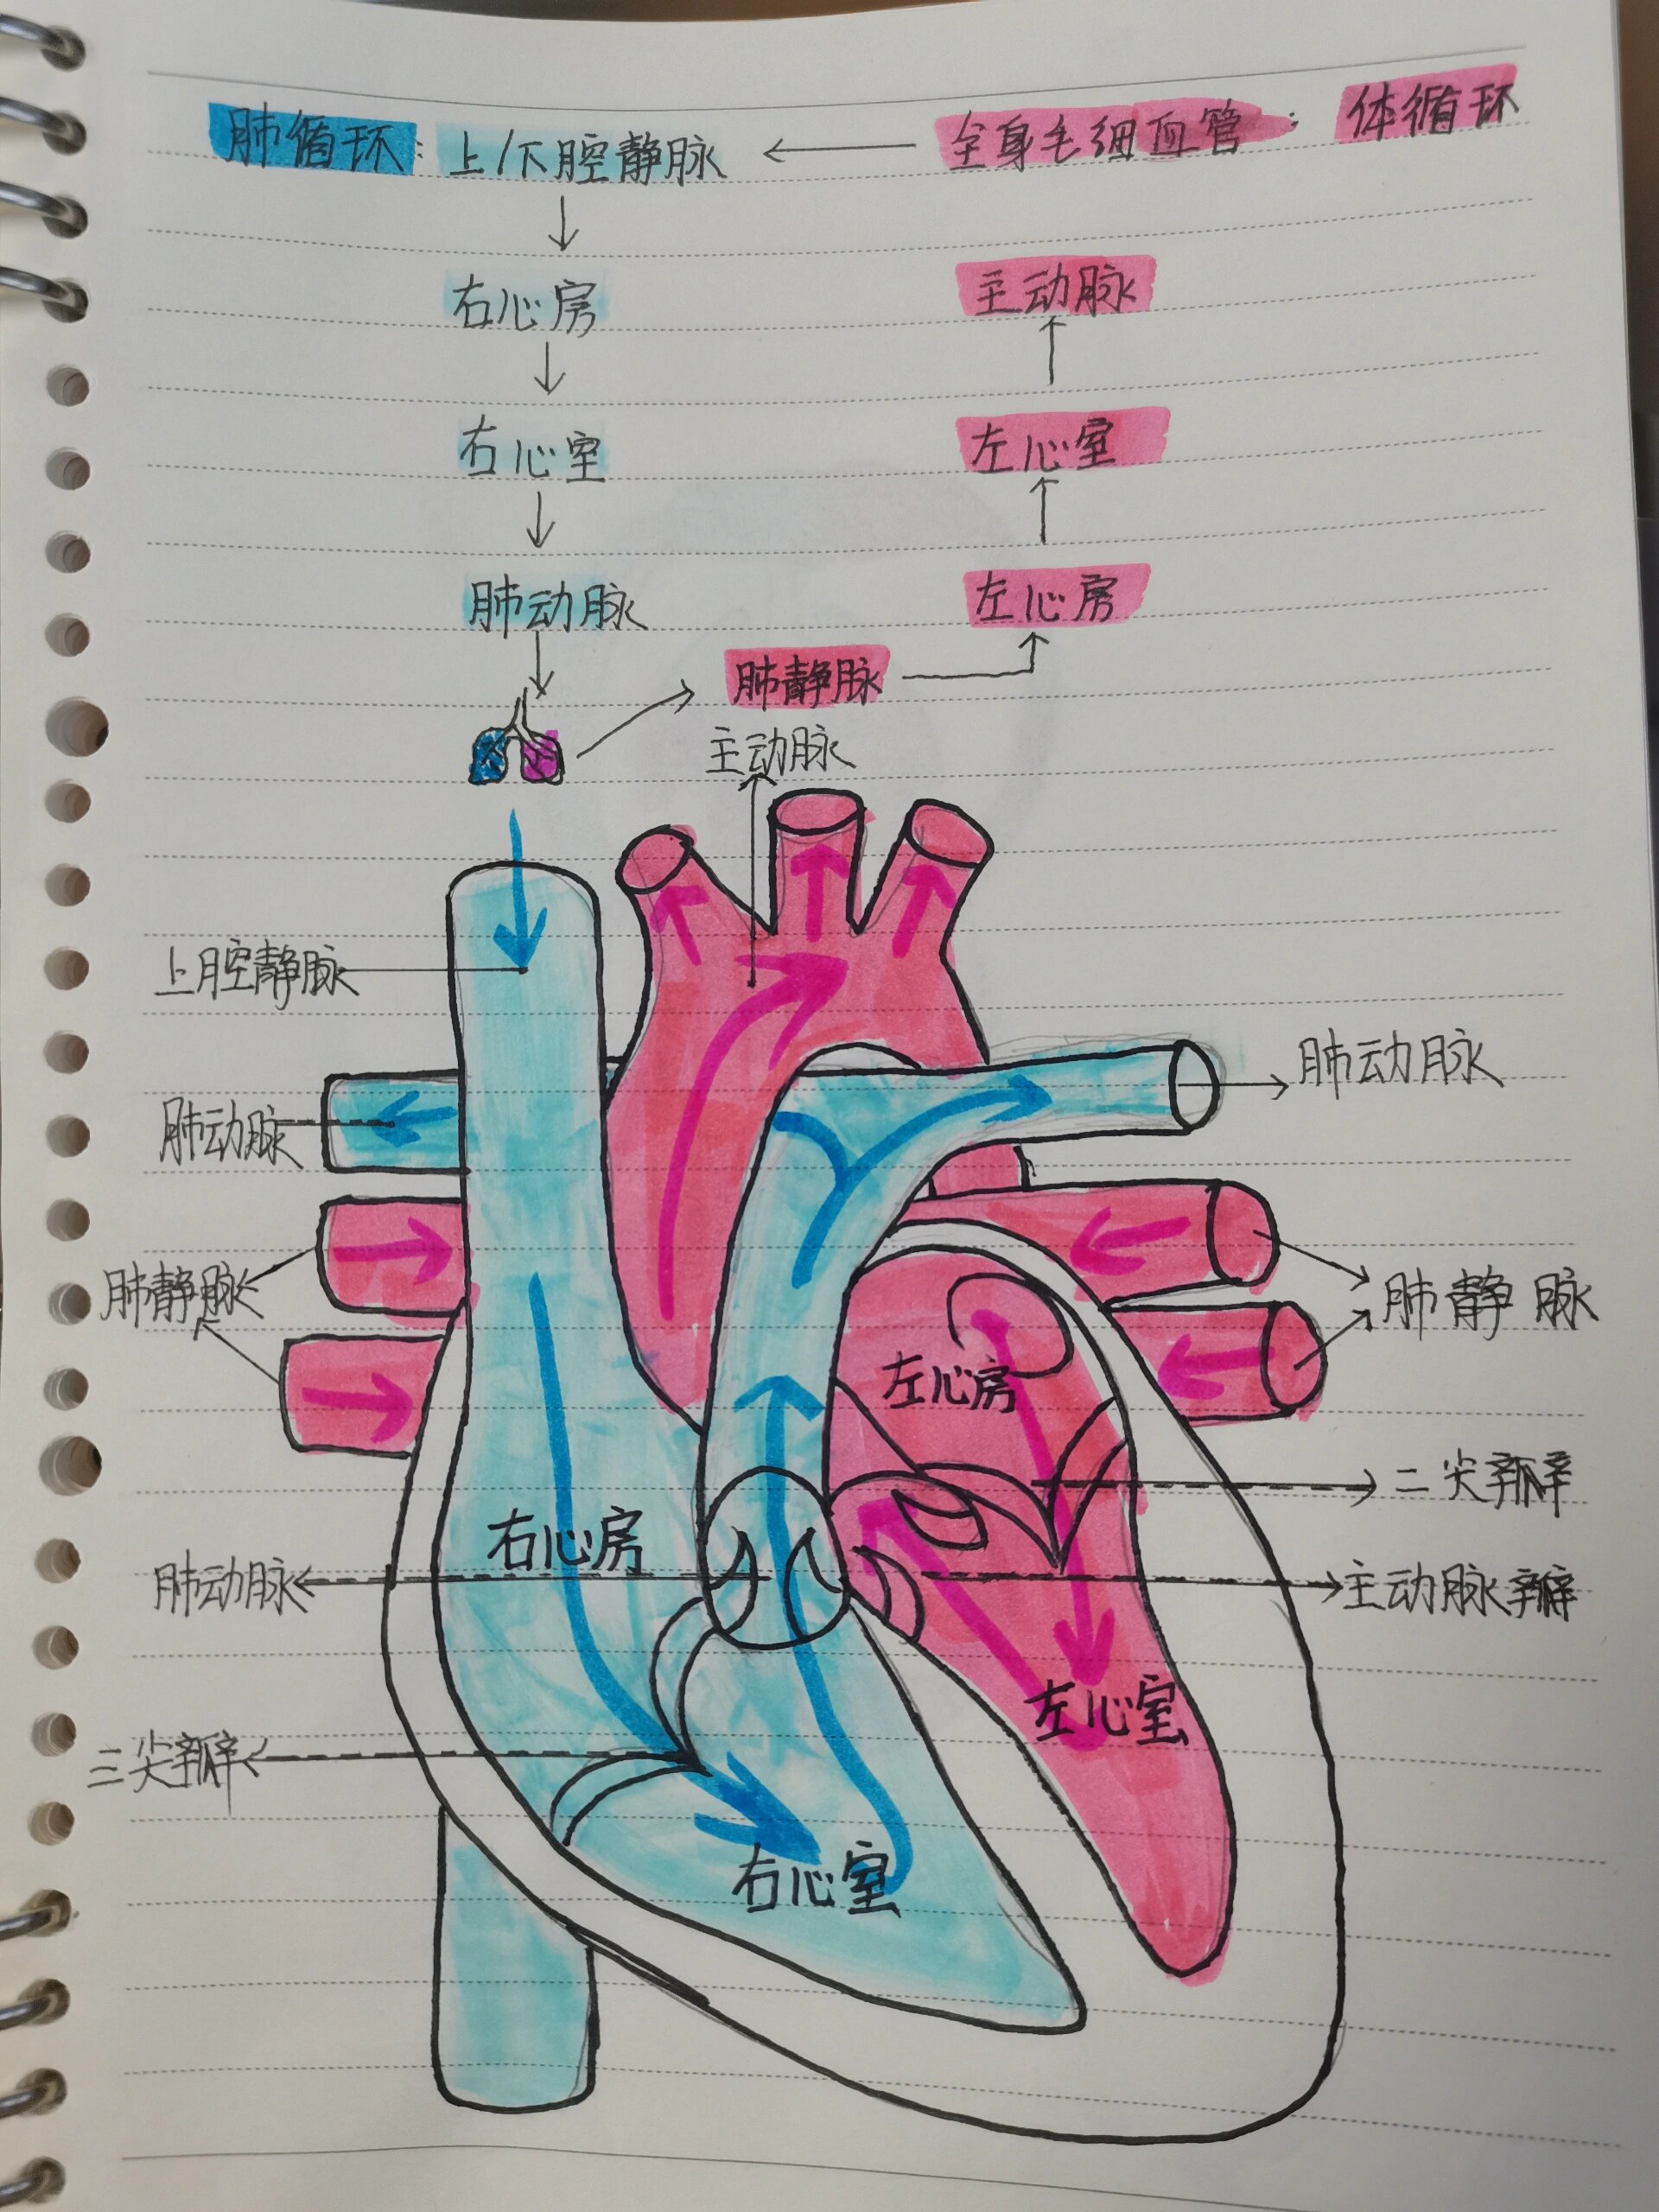 肺循环：上/下腔静脉 ← 全身毛细血管：体循环
↓
右心房 主动脉
↓ ↑
右心室 左心室
↓ ↑
肺动脉 左心房
肺静脉
主动脉
上腔静脉
肺动脉
肺动脉
肺静脉
肺静脉
左心房
二尖瓣
右心房
肺动脉
主动脉瓣
左心室
三尖瓣
右心室